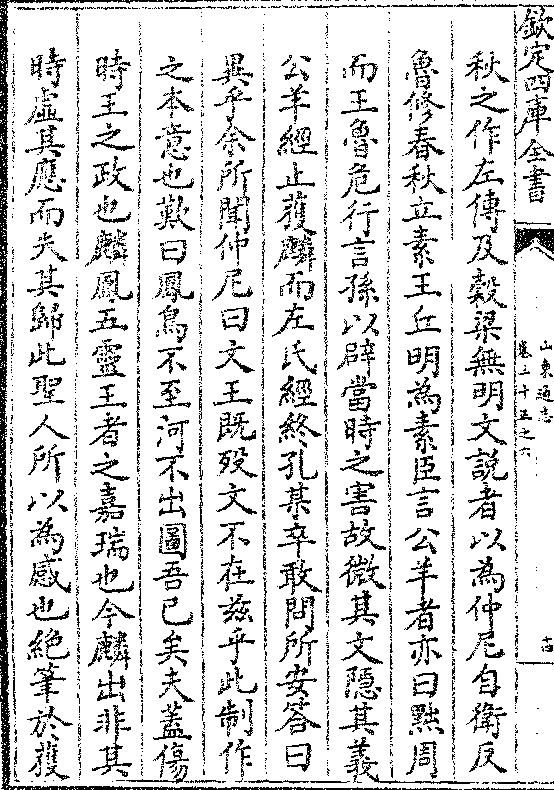 欽定四庫全書
山東通志
卷三十五之六
秋之作左傳及糓梁無明文説者以為仲尼自衛反
魯修春秋立素王丘明為素臣言公羊者亦曰黜周
而王魯危行言孫以辟當時之害故微其文隱其義
公羊經止獲麟而左氏經終孔某卒敢問所安答曰
異乎余所聞仲尼曰文王既歿文不在兹乎此制作
之本意也歎曰鳳鳥不至河不出圖吾已矣夫蓋傷
時王之政也麟鳳五靈王者之嘉瑞也今麟出非其
時虛其應而失其歸此聖人所以為感也絶筆於獲